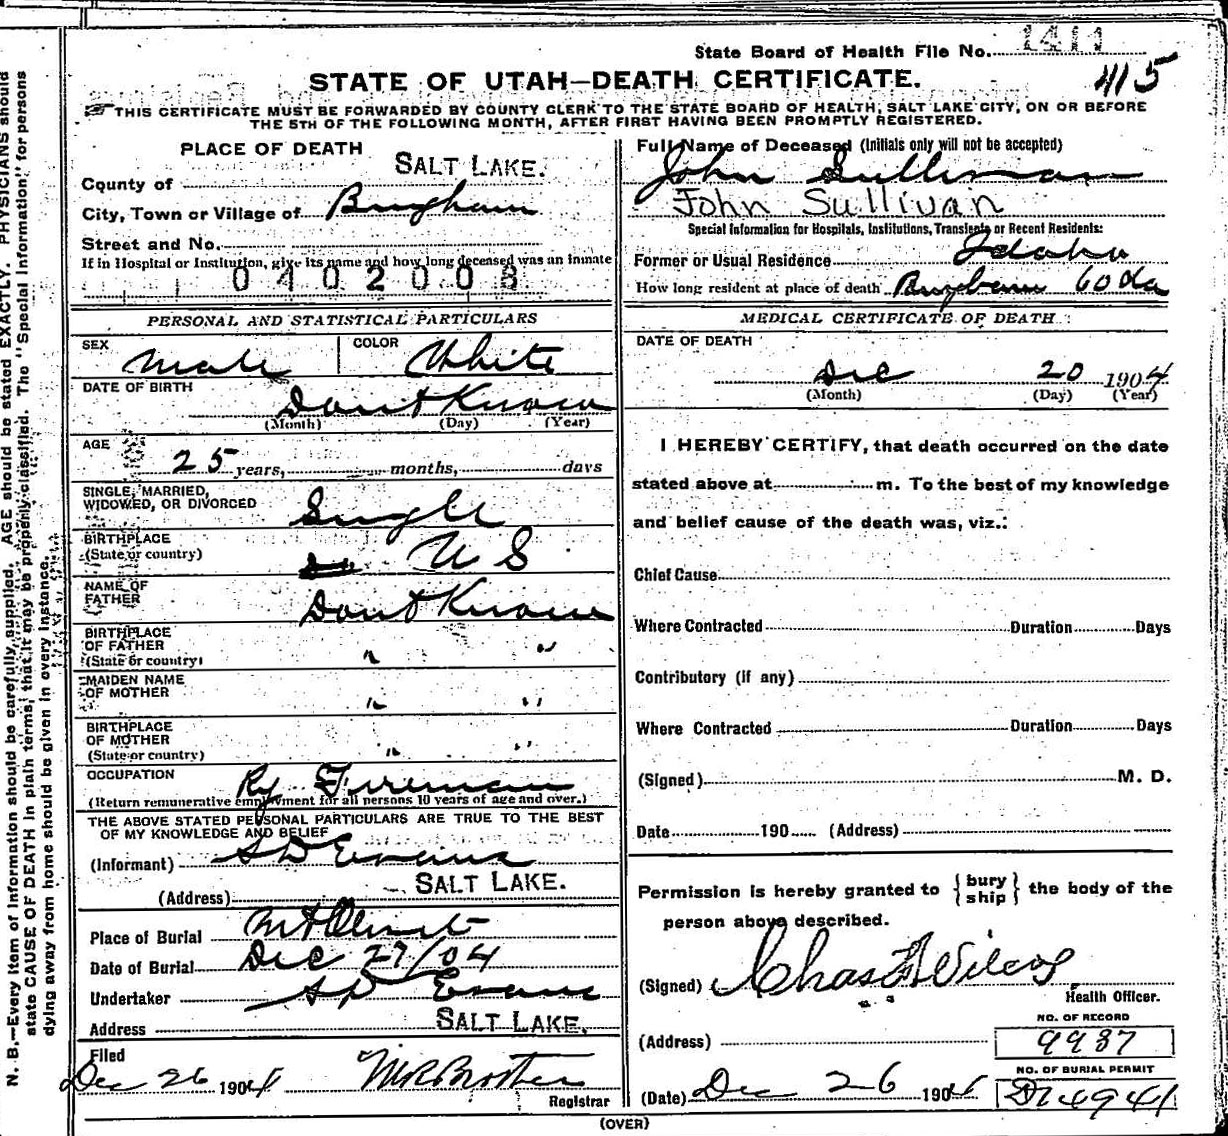 State Board of Health File No. 1411
415
STATE OF UTAH—DEATH CERTIFICATE.
THIS CERTIFICATE MUST BE FORWARDED BY COUNTY CLERK TO THE STATE BOARD OF HEALTH, SALT LAKE CITY, ON OR BEFORE
THE 5TH OF THE FOLLOWING MONTH, AFTER FIRST HAVING BEEN PROMPTLY REGISTERED.
PLACE OF DEATH
County of SALT LAKE.
City, Town or Village of Bingham
Street and No.
If in Hospital or Institution, give its name and how long deceased was an inmate
0402008
PERSONAL AND STATISTICAL PARTICULARS
SEX Male COLOR White
DATE OF BIRTH Dont Know
(Month) (Day) (Year)
AGE 25 years, months, days
SINGLE, MARRIED,
WIDOWED, OR DIVORCED Single
BIRTHPLACE
(State or country) U S
NAME OF
FATHER Dont Know
BIRTHPLACE
OF FATHER
(State or country) " "
MAIDEN NAME
OF MOTHER " "
BIRTHPLACE
OF MOTHER
(State or country) " "
OCCUPATION Ry Fireman
(Return remunerative employment for all persons 10 years of age and over.)
THE ABOVE STATED PERSONAL PARTICULARS ARE TRUE TO THE BEST
OF MY KNOWLEDGE AND BELIEF
(Informant) S D Evans
(Address) SALT LAKE.
Place of Burial Mt Olivet
Date of Burial Dec 27/04
Undertaker S D Evans
Address SALT LAKE.
Filed
Dec 26 1904
Registrar
Full Name of Deceased (Initials only will not be accepted)
John Sullivan
John Sullivan
Special Information for Hospitals, Institutions, Transients or Recent Residents:
Former or Usual Residence Idaho
How long resident at place of death Bingham 60 da
MEDICAL CERTIFICATE OF DEATH
DATE OF DEATH
Dec 20 1904
(Month) (Day) (Year)
I HEREBY CERTIFY, that death occurred on the date
stated above at m. To the best of my knowledge
and belief cause of the death was, viz.:
Chief Cause
Where Contracted Duration Days
Contributory (if any)
Where Contracted Duration Days
(Signed) M. D.
Date 190 (Address)
Permission is hereby granted to {bury ship} the body of the
person above described.
(Signed) Chas F Wilcox
Health Officer.
NO. OF RECORD
(Address) 9937
NO. OF BURIAL PERMIT
(Date) Dec 26 1904 D14941
(OVER)
N. B.—Every item of information should be carefully supplied. AGE should be stated EXACTLY. PHYSICIANS should
state CAUSE OF DEATH in plain terms, that it may be properly classified. The "Special Information" for persons
dying away from home should be given in every instance.